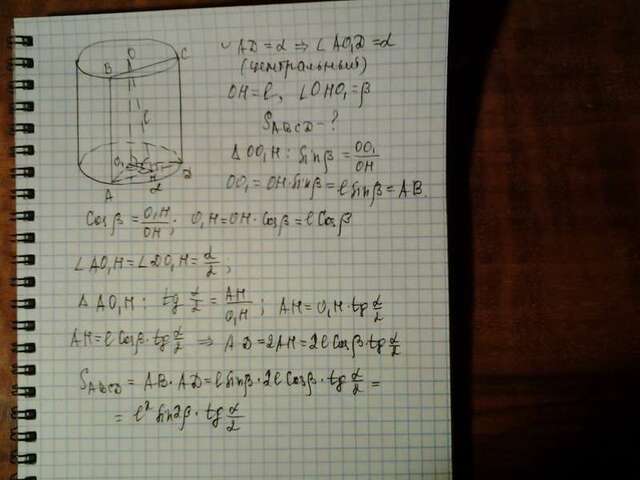 ∪AD = α ⇒ ∠AO₁D = α
(центральный)
OH = l, ∠OHO₁ = β
S_ABCD - ?
Δ OO₁H: sinβ = OO₁/OH
OO₁ = OH·sinβ = l sinβ = AB.
B O C
l
O₁ H D
A α
Cosβ = O₁H/OH; O₁H = OH·Cosβ = l Cosβ
∠AO₁H = ∠DO₁H = α/2;
Δ AO₁H: tg α/2 = AH/O₁H; AH = O₁H·tg α/2
AH = l Cosβ·tg α/2 ⇒ AD = 2AH = 2l Cosβ·tg α/2
S_ABCD = AB·AD = l sinβ·2l Cosβ·tg α/2 =
= l² sin2β·tg α/2